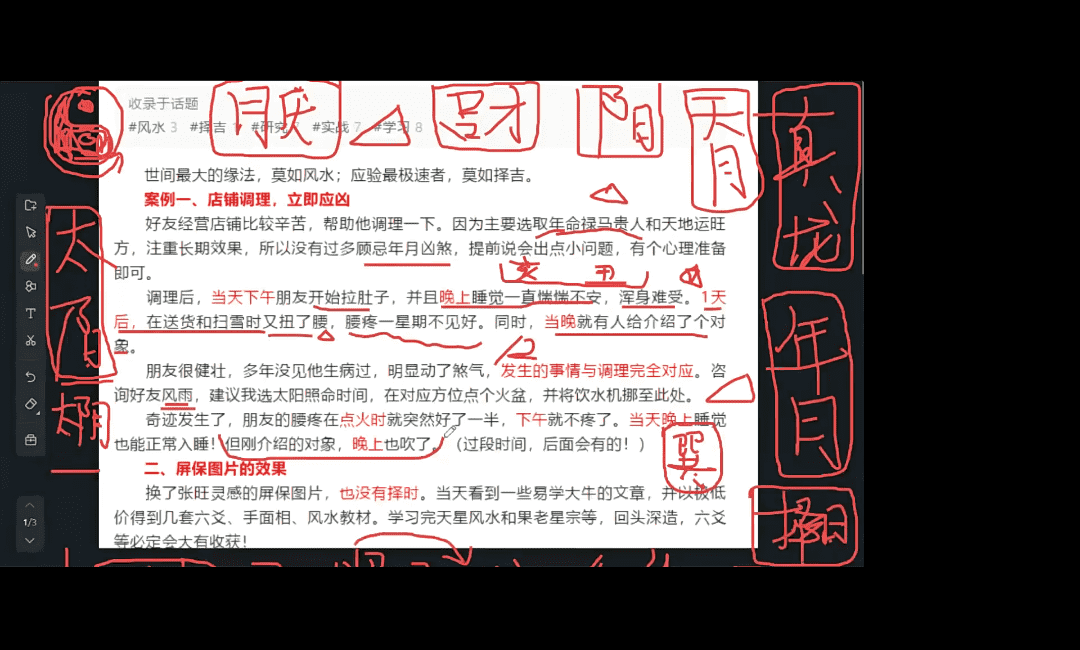 收录于话题
#风水 3 #择吉 #研究 #实战 7 #学习 8
月厌
吕才
阳
天月
真龙
世间最大的缘法，莫如风水；应验最极速者，莫如择吉。
案例一、店铺调理，立即应凶
好友经营店铺比较辛苦，帮助他调理一下。因为主要选取年命禄马贵人和天地运旺
方，注重长期效果，所以没有过多顾忌年月凶煞，提前说会出点小问题，有个心理准备
即可。
太阳
亥 丑
调理后，当天下午朋友开始拉肚子，并且晚上睡觉一直惴惴不安，浑身难受。1天
后，在送货和扫雪时又扭了腰，腰疼一星期不见好。同时，当晚就有人给介绍了个对
象。
年月
朋友很健壮，多年没见他生病过，明显动了煞气，发生的事情与调理完全对应。咨
询好友风雨，建议我选太阳照命时间，在对应方位点个火盆，并将饮水机挪至此处。
奇迹发生了，朋友的腰疼在点火时就突然好了一半，下午就不疼了。当天晚上睡觉
也能正常入睡！但刚介绍的对象，晚上也吹了。（过段时间，后面会有的！）
二、屏保图片的效果
换了张旺灵感的屏保图片，也没有择时。当天看到一些易学大牛的文章，并以极低
价得到几套六爻、手面相、风水教材。学习完天星风水和果老星宗等，回头深造，六爻
等必定会大有收获！
择日
T
1/3